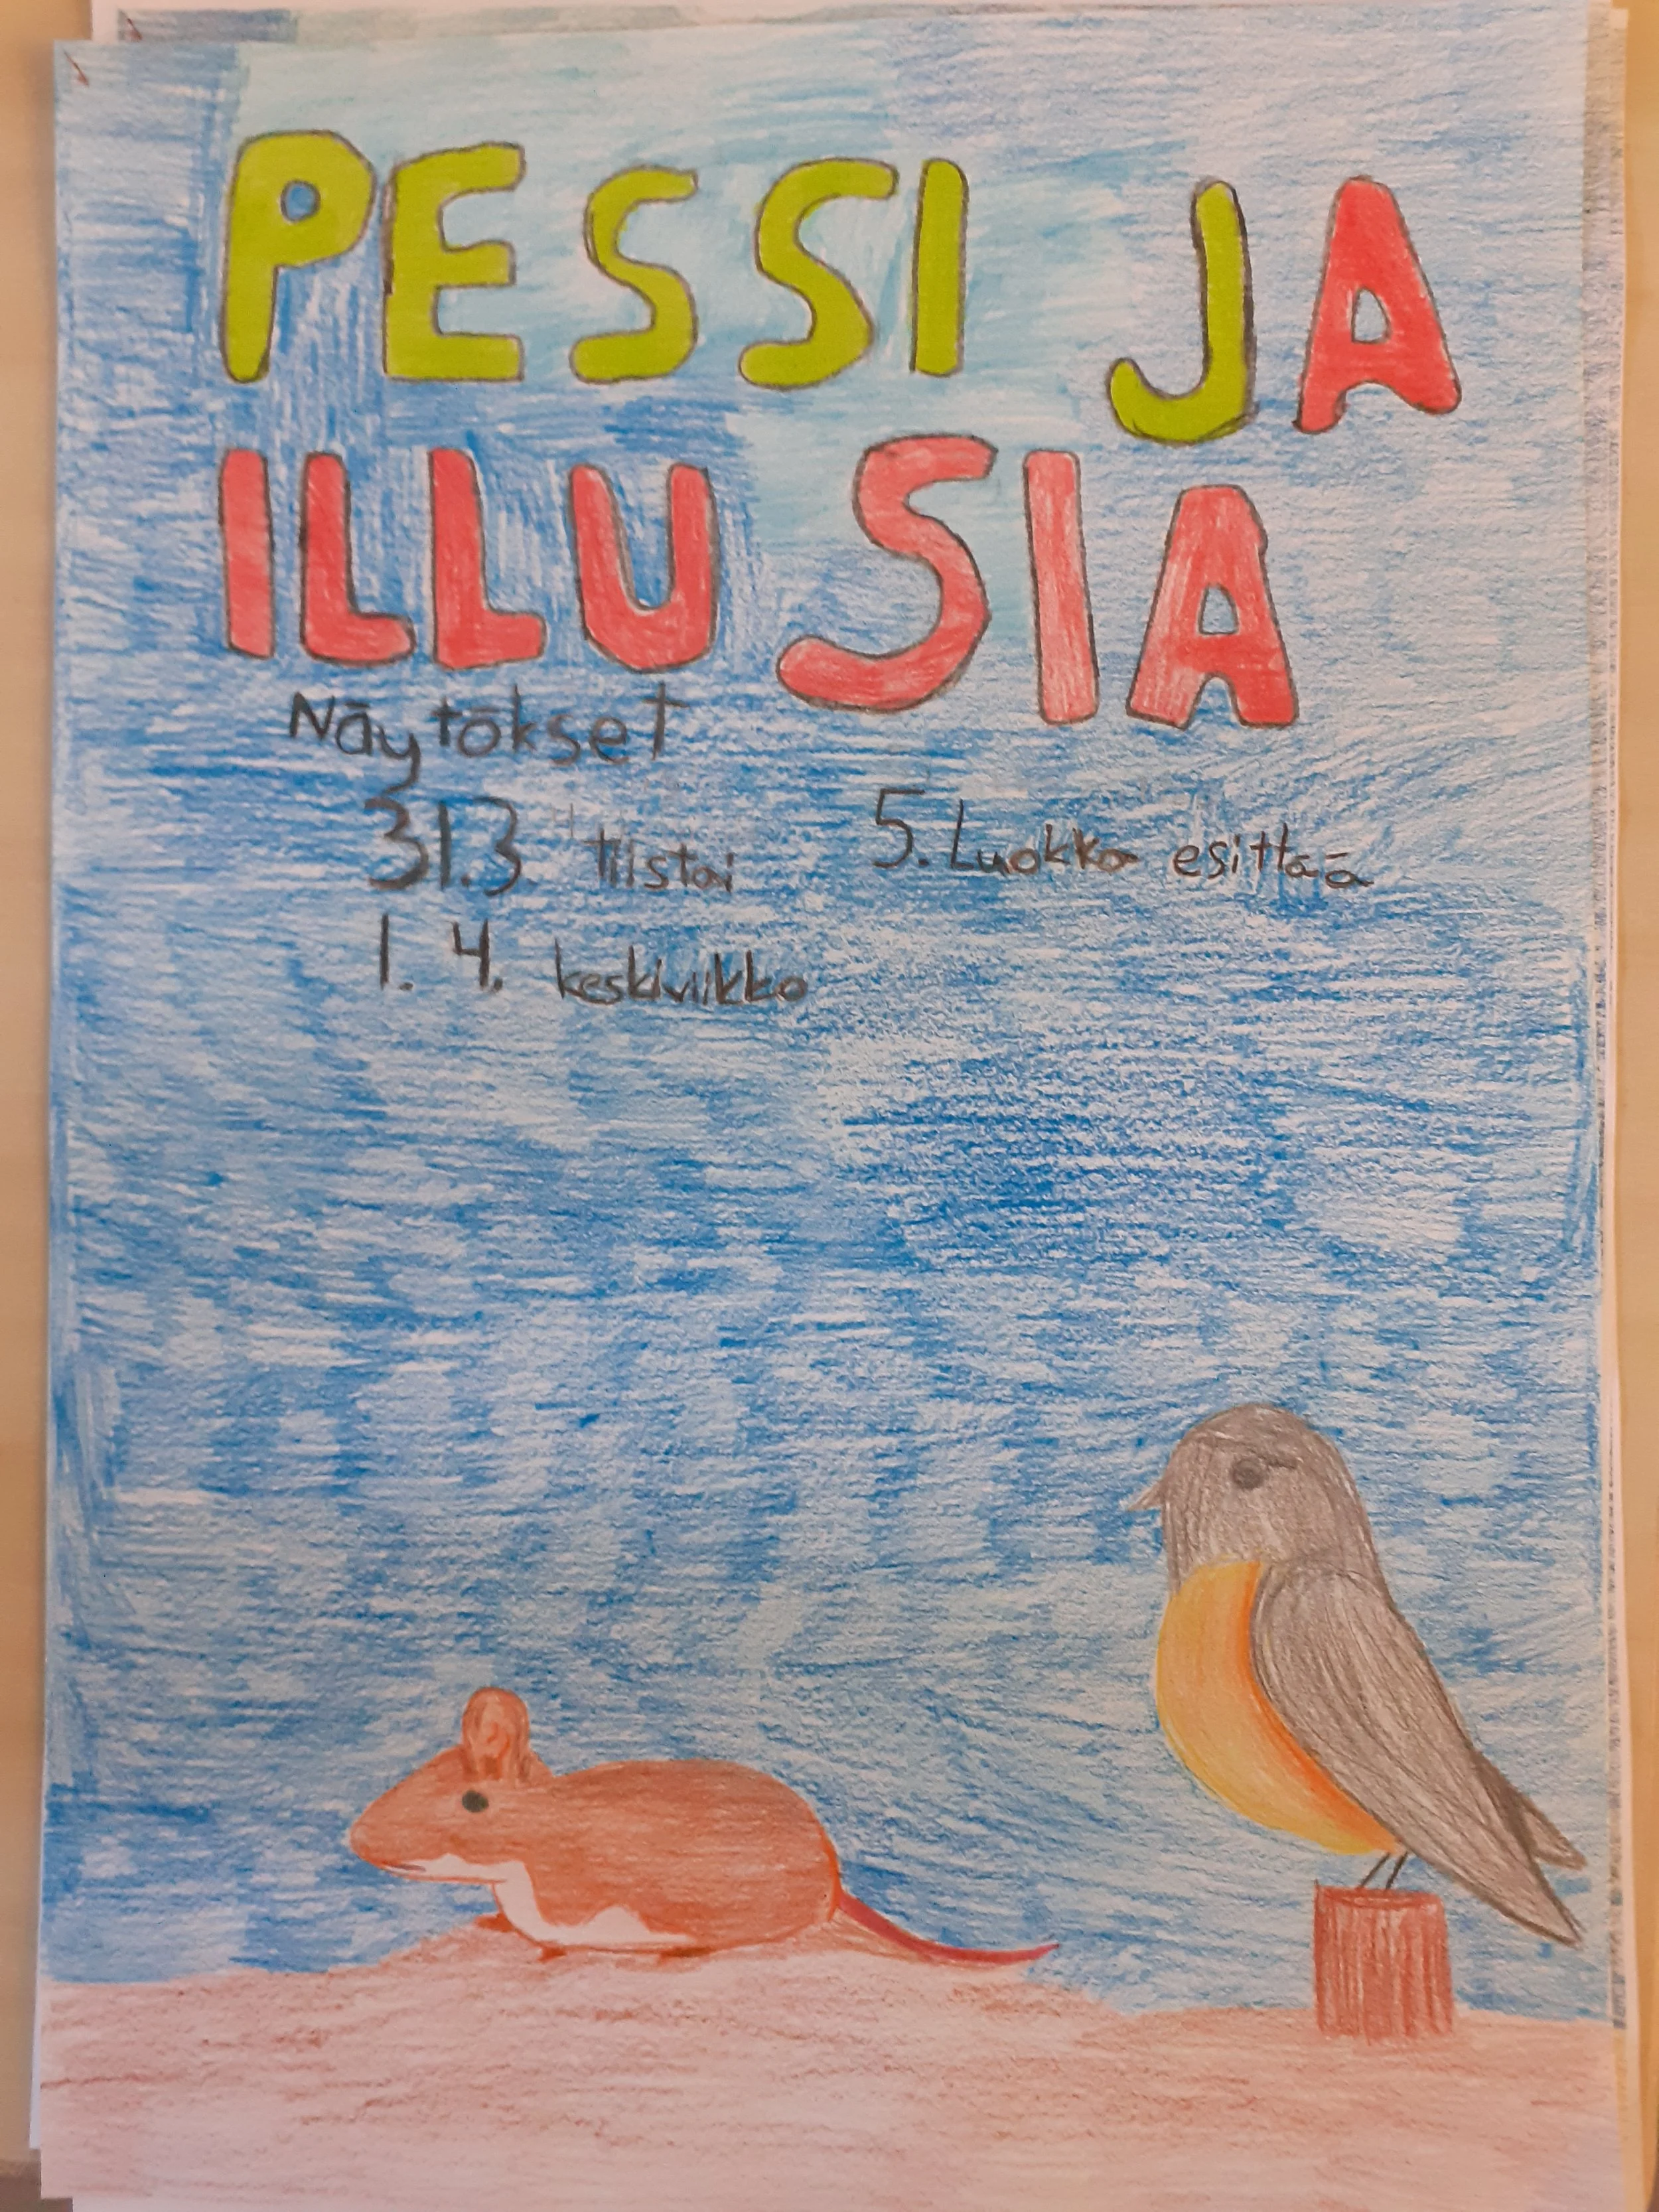 PESSI JA
ILLUSIA
Näytökset
31.3. tiistai
5. Luokka esittää
1. 4. keskiviikko